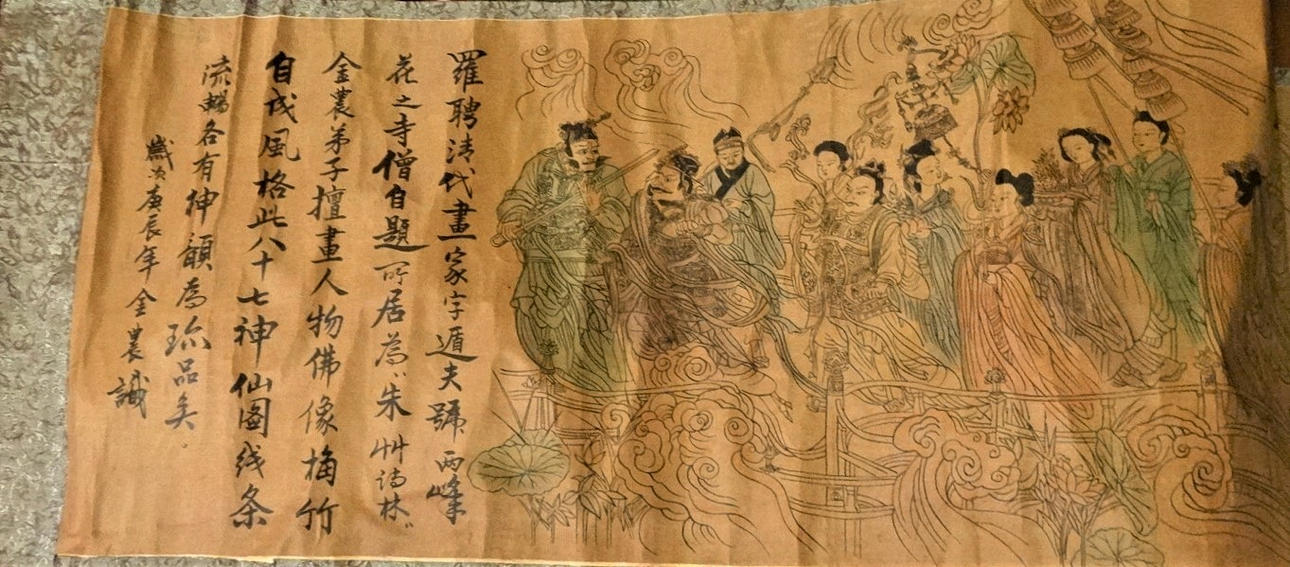 羅聘清代畫家字遁夫號两峰
花之寺僧自題所居為"朱艸诗林"
金農弟子擅畫人物佛像梅竹
自成風格此八十七神仙圖线条
流暢各有神韻為珎品矣.
歲次庚辰年金農識